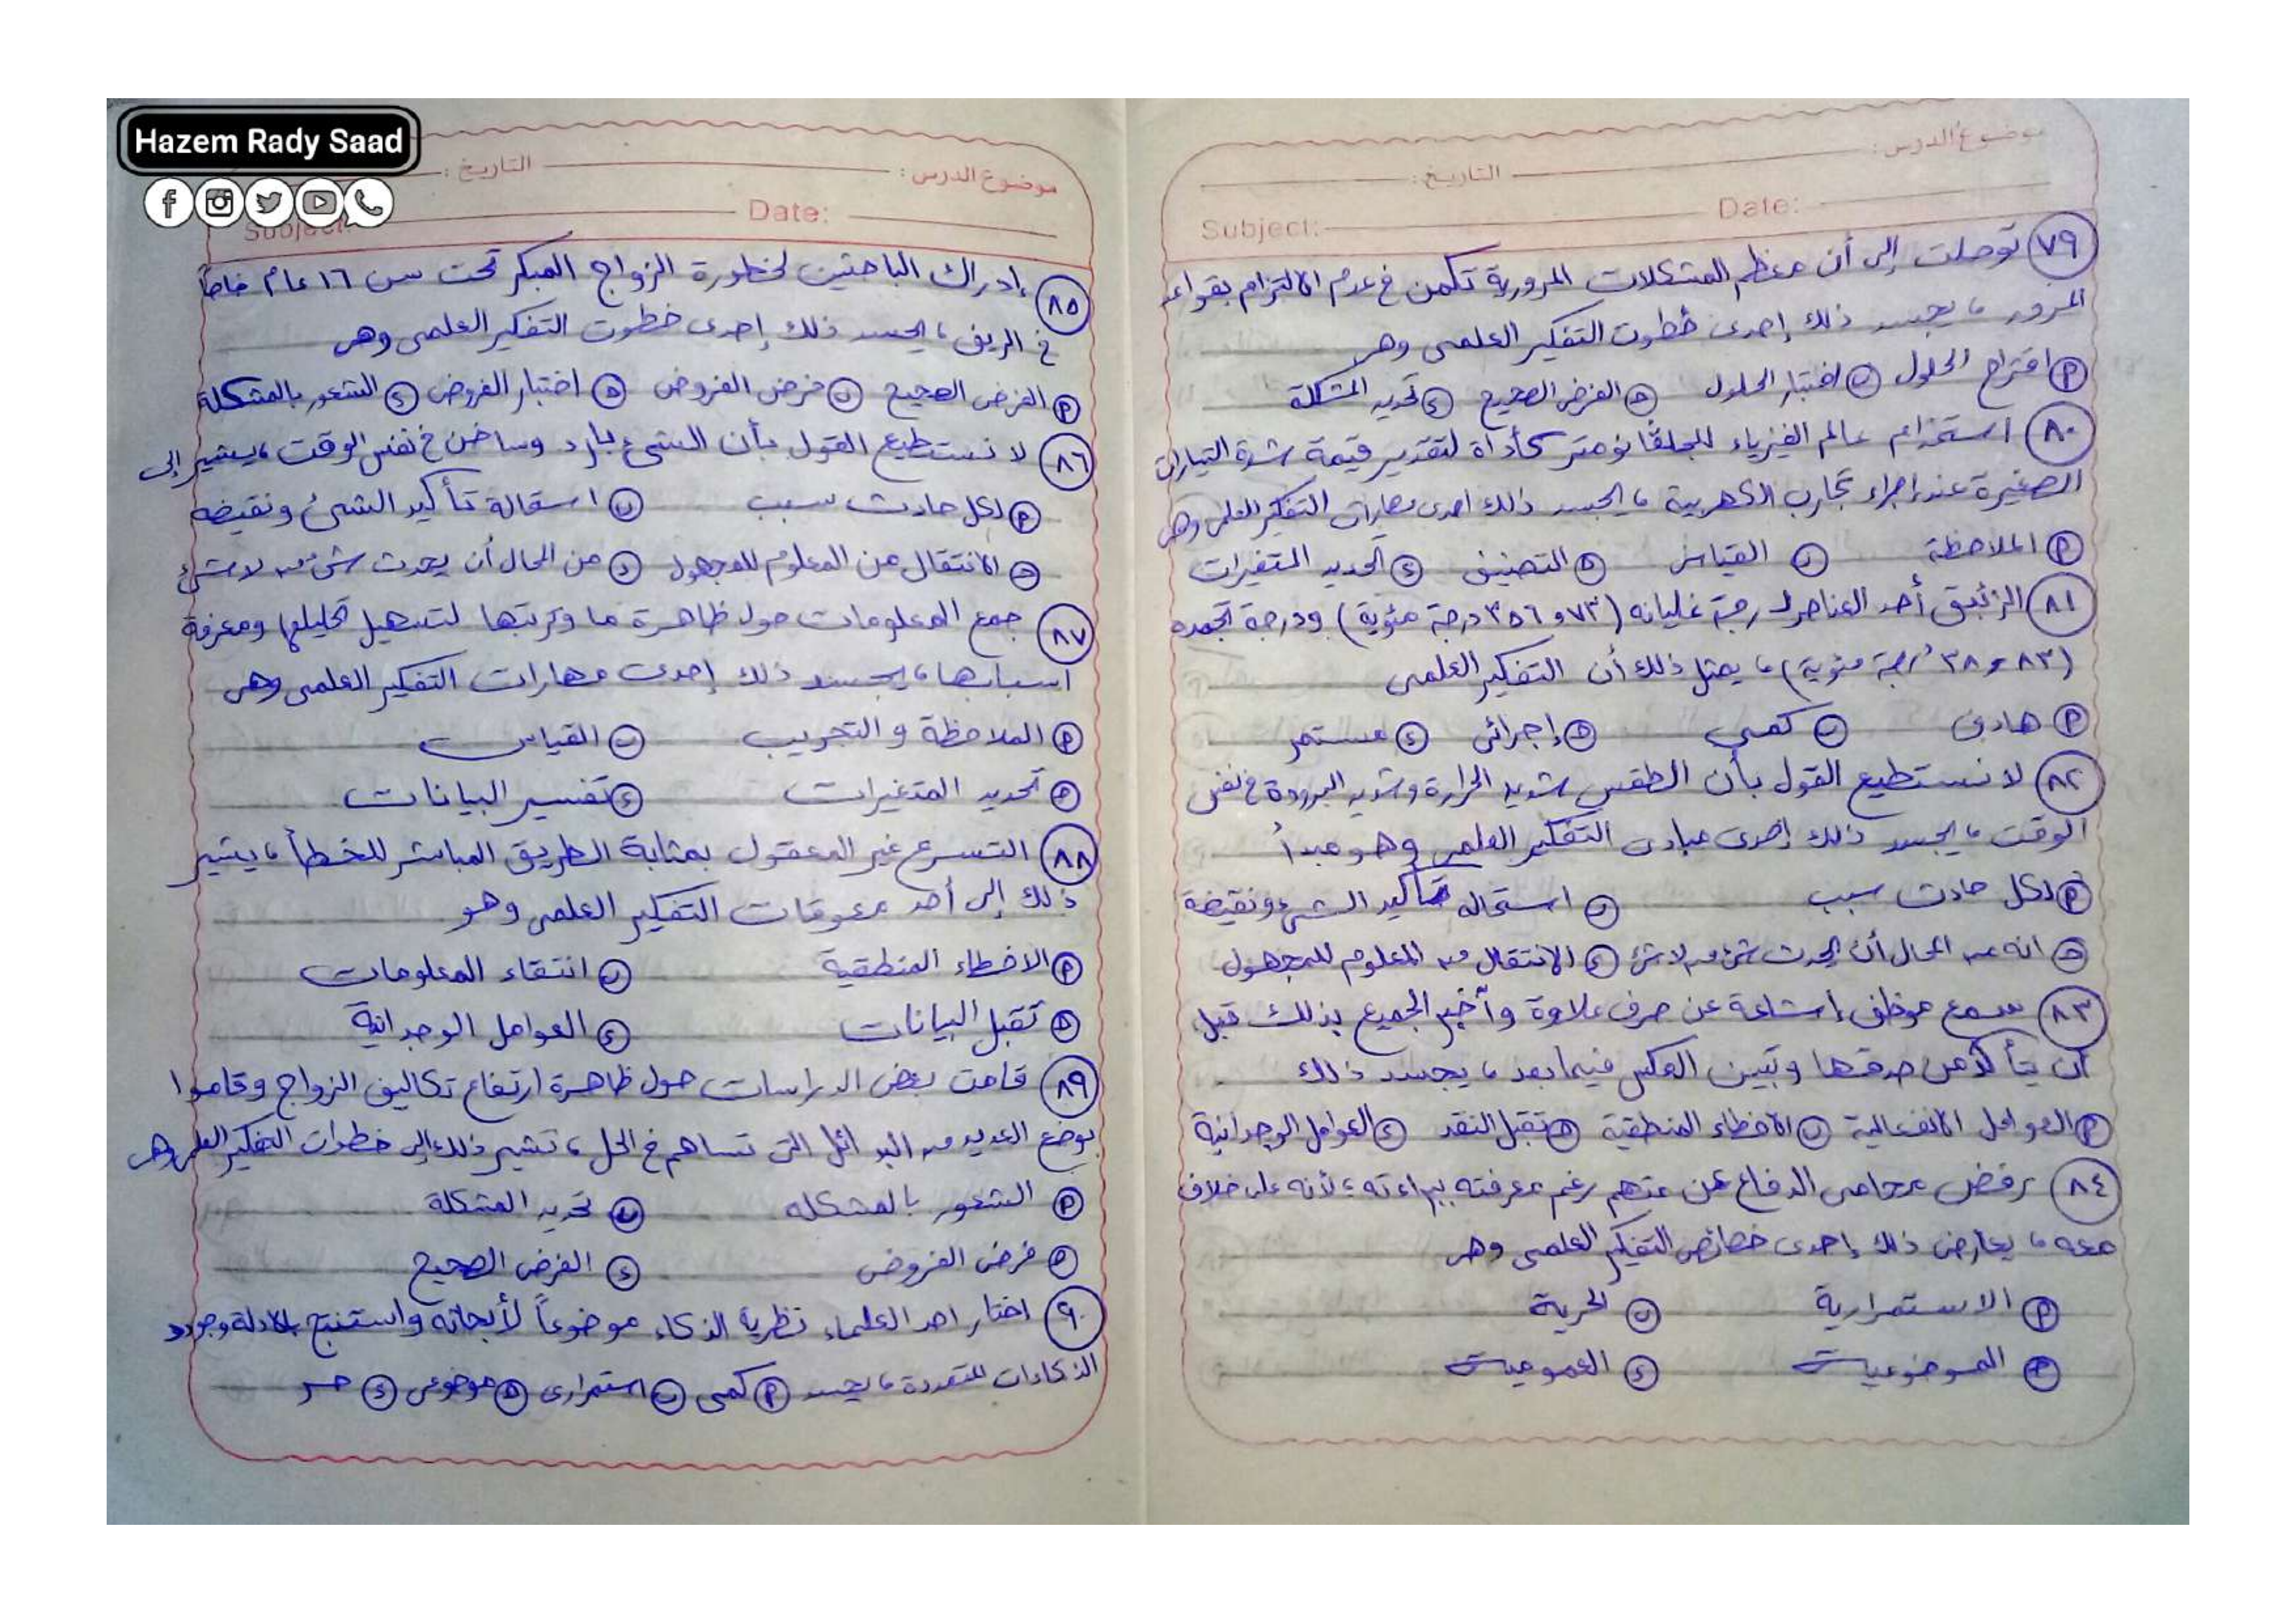 Hazem Rady Saad
موضوع الدرس:
التاريخ:
Subject:
Date:
٧٩ توصلت إلى أن معظم المشكلات المرورية تكمن في عدم الالتزام بقواعد
المرور، يجسد ذلك إحدى خطوت التفكير العلمى وهى
أ اقتراح الحلول ب اختبار الحلول ج الفرض الصحيح د تحديد المشكلة
٨٠ استخدام عالم الفيزياء للجلفانومتر كأداة لتقدير قيمة شدة التيارات
الصغيرة عند إجراء تجارب الكهربية، يجسد ذلك احدى مهارات التفكير العلمى وهى
أ الملاحظة ب القياس ج التصنيف د تحديد المتغيرات
٨١ الزئبق أحد العناصر درجة غليانه (٣٥٦,٧٣ درجة مئوية) ودرجة تجمده
(٣٨,٨٣ درجة مئوية)، يمثل ذلك أن التفكير العلمى
أ هادف ب كمى ج إجرائى د مستمر
٨٢ لا نستطيع القول بأن الطقس شديد الحرارة وشديد البرودة في نفس
الوقت، يجسد ذلك إحدى مبادئ التفكير العلمى وهو مبدأ
أ لكل حادث سبب ب استحالة تأكيد الشىء ونقيضة
ج انه من المحال أن يحدث شئ من لاشئ د الانتقال من المعلوم للمجهول
٨٣ سمع موظف إشاعة عن صرف علاوة وأخبر الجميع بذلك قبل
أن يتأكد من صدقها وتبين العكس فيما بعد، يجسد ذلك
أ العوامل الانفعالية ب الأخطاء المنطقية ج تقبل النقد د العوامل الوجدانية
٨٤ رفض محامى الدفاع عن متهم رغم معرفته ببراءته، لأنه على خلاف
معه، يعارض ذلك إحدى خصائص التفكير العلمى وهى
أ الاستمرارية ب الحرية
ج الموضوعية د العمومية
موضوع الدرس:
التاريخ:
Subject
Date:
٨٥ إدراك الباحثين لخطورة الزواج المبكر تحت سن ١٦ عام خاصاً
في الريف، يجسد ذلك إحدى خطوت التفكير العلمى وهى
أ الفرض الصحيح ب فرض الفروض ج اختبار الفروض د الشعور بالمشكلة
٨٦ لا نستطيع القول بأن الشىء بارد وساخن في نفس الوقت، يشير إلى
أ لكل حادث سبب ب استقالة تأكيد الشئ ونقيضه
ج الانتقال من المعلوم للمجهول د من المحال أن يحدث شئ من لاشئ
٨٧ جمع المعلومات حول ظاهرة ما وترتبها لتسهيل تحليلها ومعرفة
اسبابها، يجسد ذلك إحدى مهارات التفكير العلمى وهى
أ الملاحظة والتجريب ب القياس
ج تحديد المتغيرات د تفسير البيانات
٨٨ التسرع غير المعقول بمثابة الطريق المباشر للخطأ، يشير
ذلك إلى أحد معوقات التفكير العلمى وهو
أ الاخطاء المنطقية ب انتقاء المعلومات
ج تقبل البيانات د العوامل الوجدانية
٨٩ قامت بعض الدراسات حول ظاهرة ارتفاع تكاليف الزواج وقاموا
بوضع العديد من البدائل التى تساهم في الحل، تشير ذلك إلى خطوات التفكير العلمى وهى
أ الشعور بالمشكله ب تحديد المشكلة
ج فرض الفروض د الفرض الصحيح
٩٠ اختار احد العلماء نظرية الذكاء موضوعاً لأبحاثه واستنتج بالادلة وجود
الذكاءات المتعددة، يجسد أ كمى ب استمرارى ج موضوعى د حر